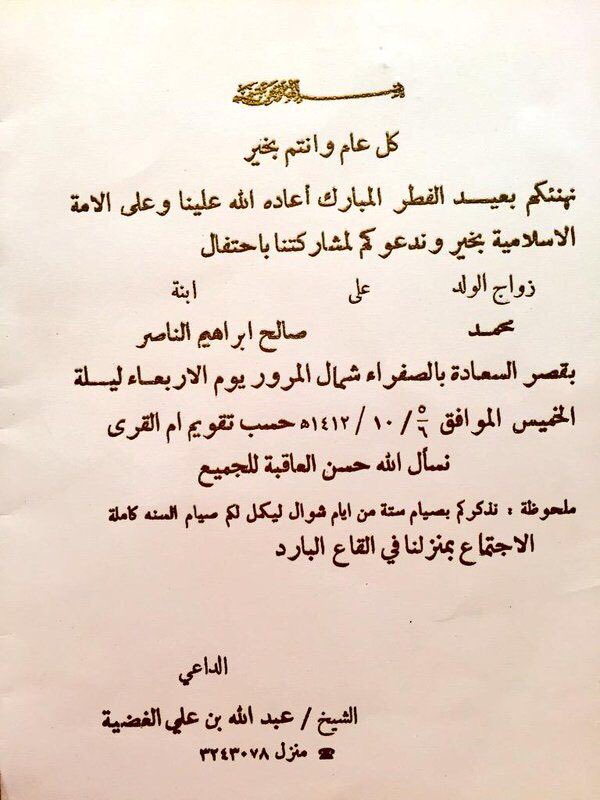 بسم الله الرحمن الرحيم
كل عام وانتم بخير
نهنئكم بعيد الفطر المبارك أعاده الله علينا وعلى الامة
الاسلامية بخير وندعوكم لمشاركتنا باحتفال
زواج الولد على ابنة
محمد صالح ابراهيم الناصر
بقصر السعادة بالصفراء شمال المرور يوم الاربعاء ليلة
الخميس الموافق ٥/٦ / ١٠ / ١٤١٢ه حسب تقويم ام القرى
نسأل الله حسن العاقبة للجميع
ملحوظة : نذكركم بصيام ستة من ايام شوال ليكمل لكم صيام السنه كاملة
الاجتماع بمنزلنا في القاع البارد
الداعي
الشيخ / عبد الله بن علي الغضية
☎ منزل ٣٢٤٣٠٧٨